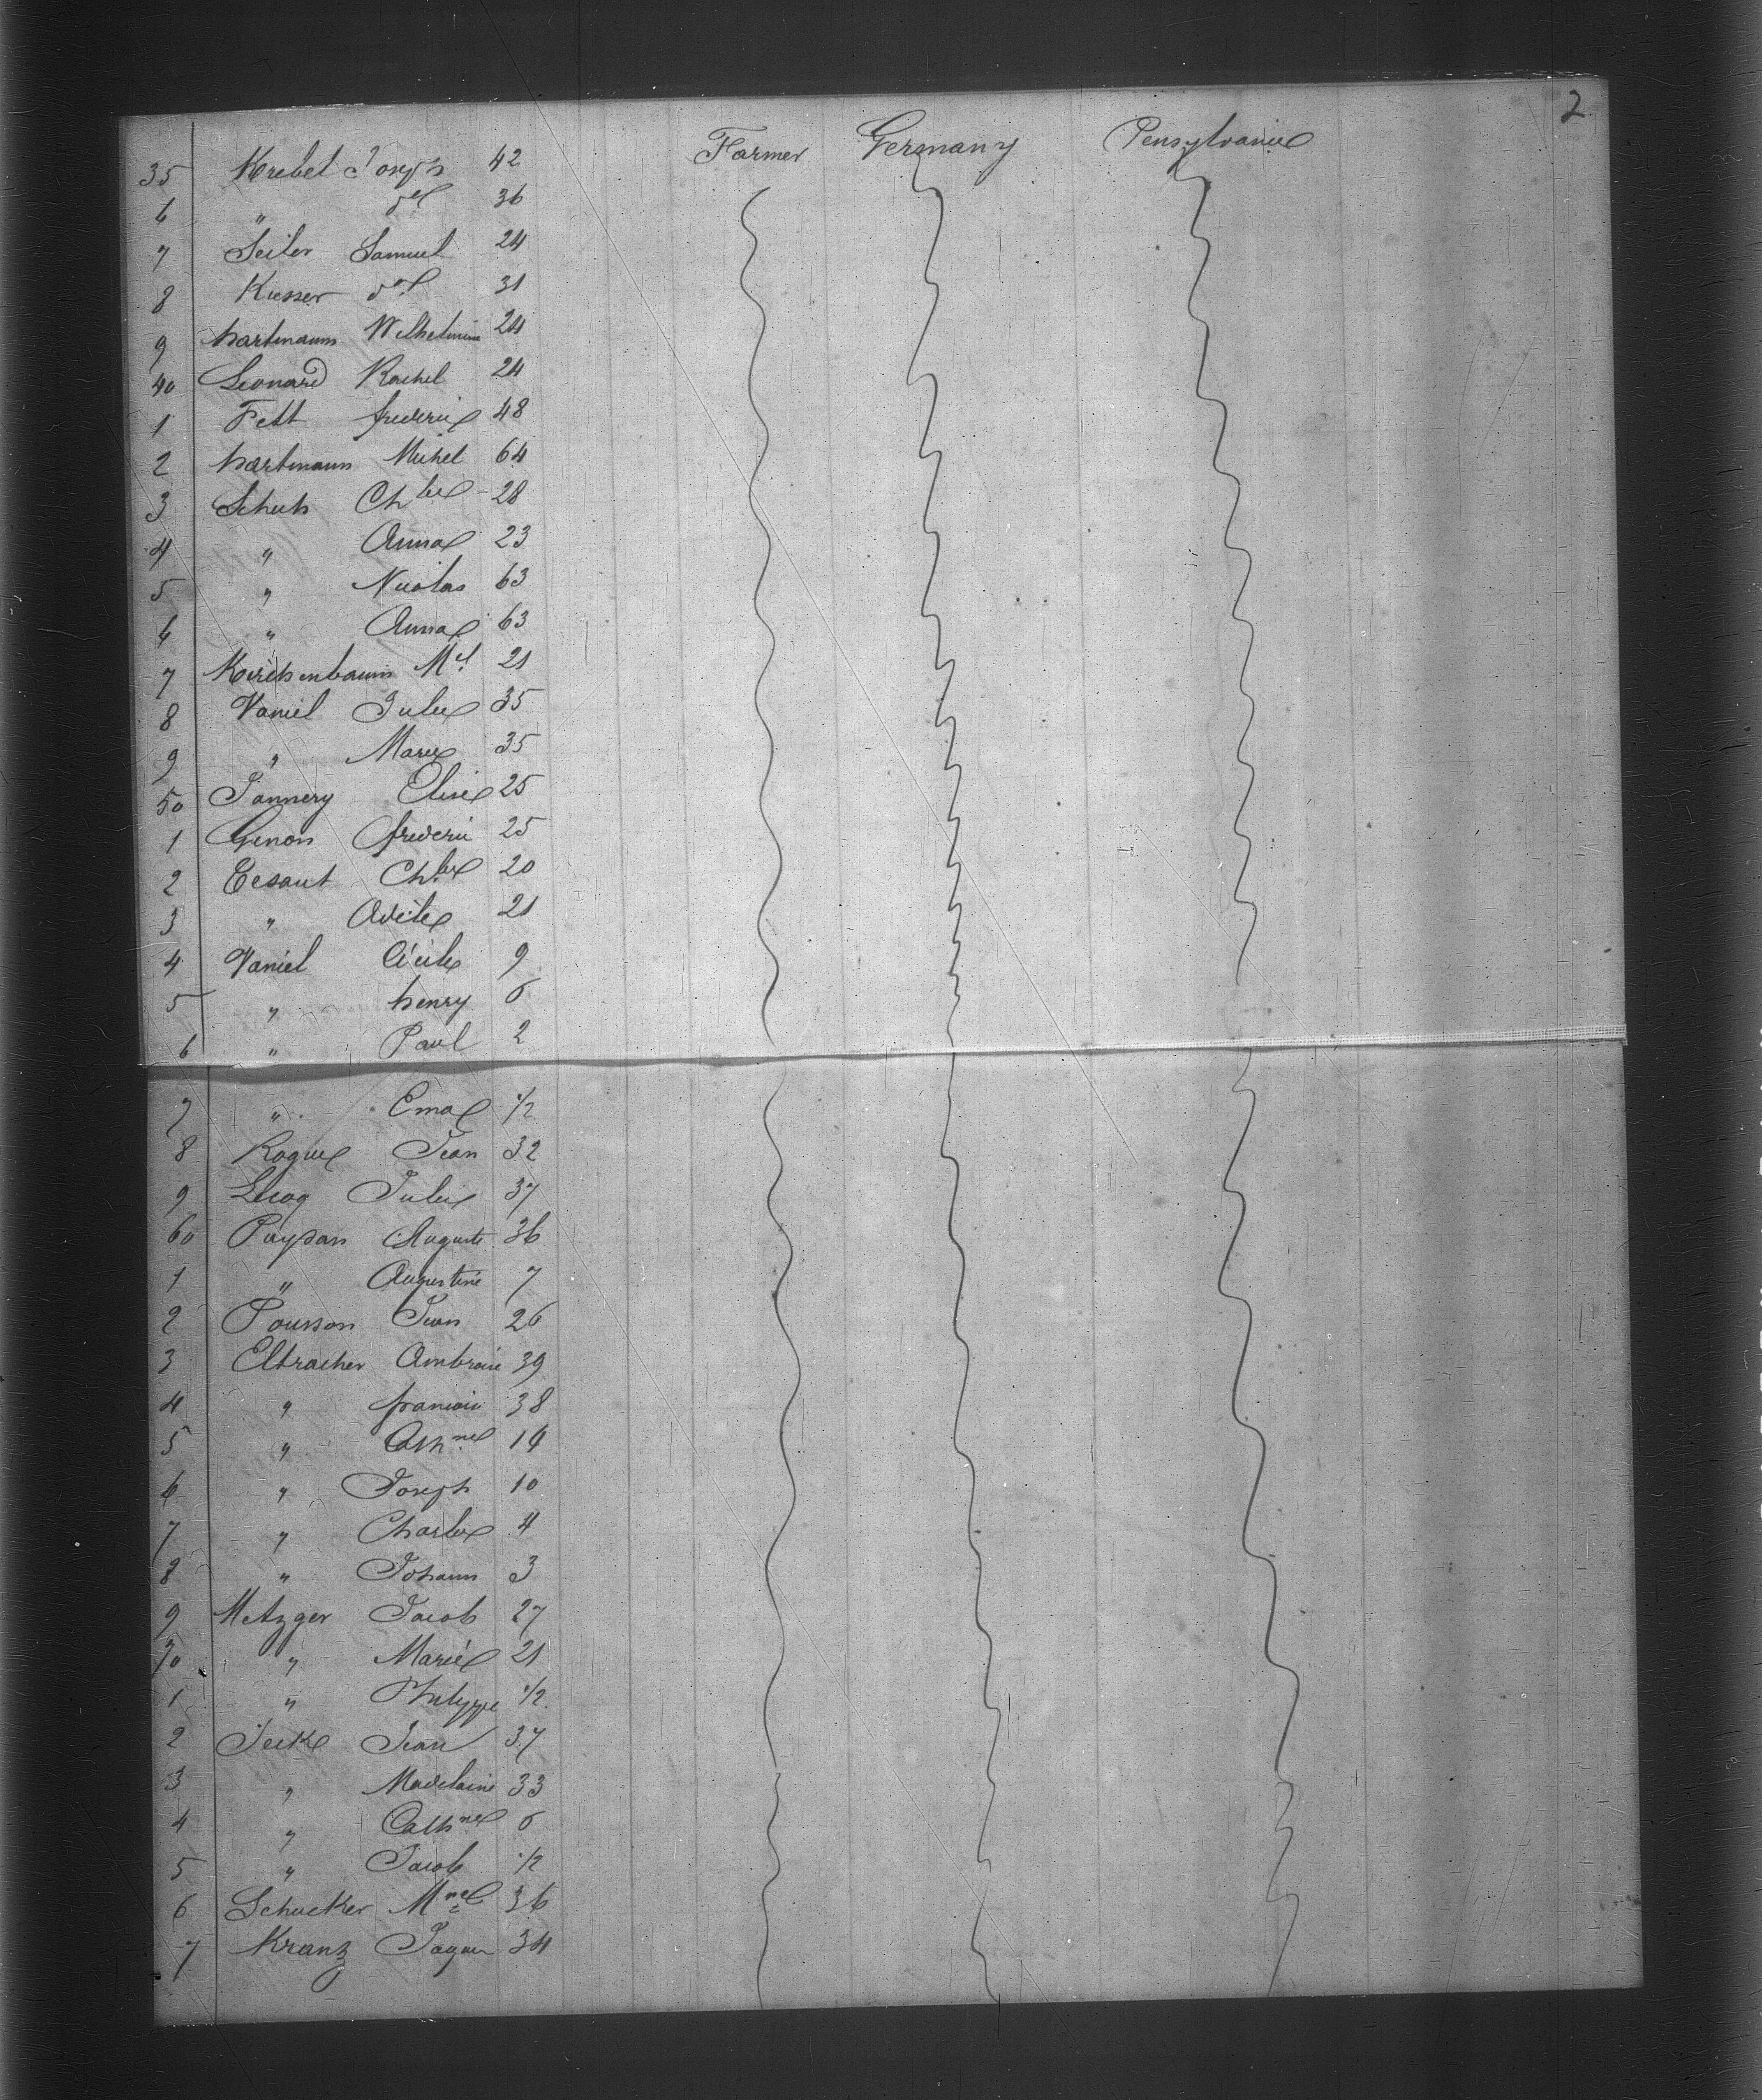 2
35 Krebel Joseph 42 Farmer Germany Pensylvanie
6 " 36
7 Seiler Samuel 24
8 Kusser 31
9 hartmann Wilhelmine 24
40 Leonard Rachel 24
1 Fett frederic 48
2 hartmann Michel 64
3 Schuh Ch les 28
4 " Anna 23
5 " Nicolas 63
6 " Anna 63
7 Kirchenbaum Mel 21
8 Vaniel Jules 35
9 " Marie 35
50 Jannery Elise 25
1 Genon frederic 25
2 Eesaut Ch. les 20
3 " Adèle 21
4 Vaniel Cécile 9
5 " henry 6
6 " Paul 2
7 " Ema 1/2
8 Rogue Jean 32
9 Lecoq Julie 37
60 Paysan Auguste 36
1 " Augustine 7
2 Pousson Jean 26
3 Eltracher Ambroise 39
4 " francois 38
5 " Cath ne 14
6 " Joseph 10
7 " Charles 4
8 " Johann 3
9 Metzger Jacob 27
70 " Marie 21
1 " Philyppe 1/2
2 Jecke Jean 37
3 " Madelaine 33
4 " Cath ne 6
5 " Jacob 1/2
6 Schucker Mne 36
7 Kranz Jaques 34